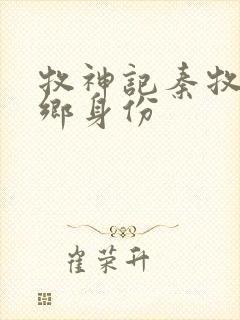 牧神記秦牧
鄉身份
崔荣升